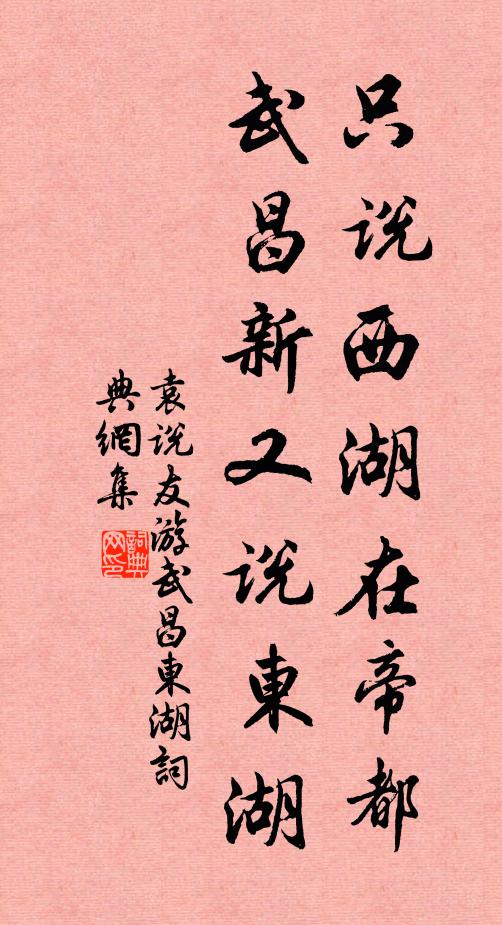 只说西湖在帝都
武昌新又说東湖
袁说友游武昌東湖詞
典網集
詞典网印